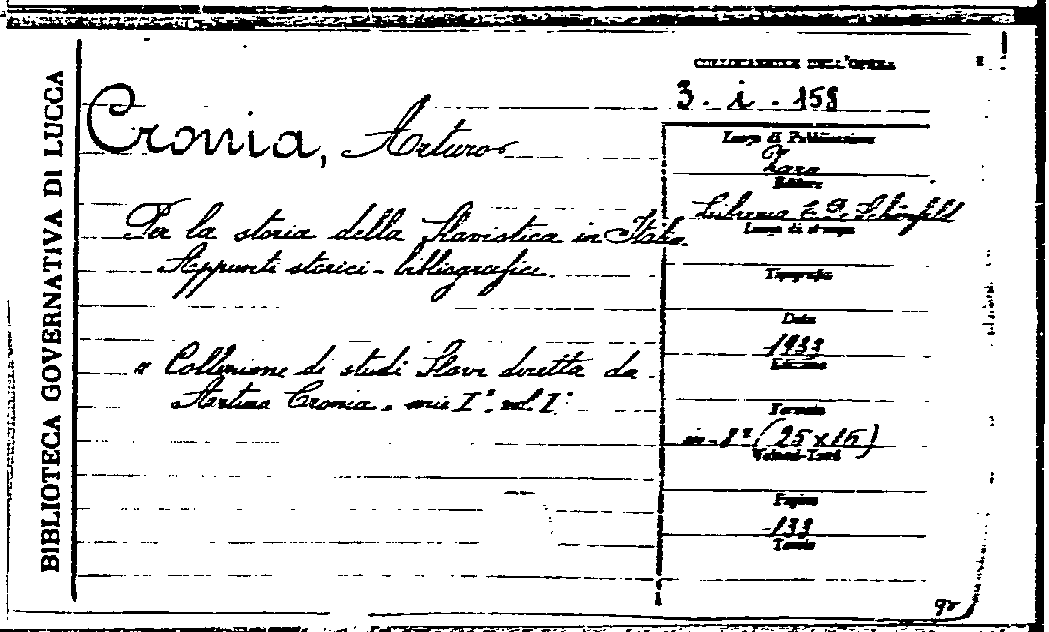 BIBLIOTECA GOVERNATIVA DI LUCCA
COLLOCAZIONE DELL'OPERA
3. i. 158
Cronia, Arturo
Per la storia della Slavistica in Italia.
Appunti storici-bibliografici.
" Collezione di studi Slavi diretta da
Arturo Cronia. serie I^a. vol. I°
Luogo di Pubblicazione
Zara
Editore
Libreria E. De Schönfeld
Luogo di stampa
Tipografia
Data
1933
Edizione
Formato
in-8° (25x16)
Volumi-Tomi
Pagine
133
Tavole